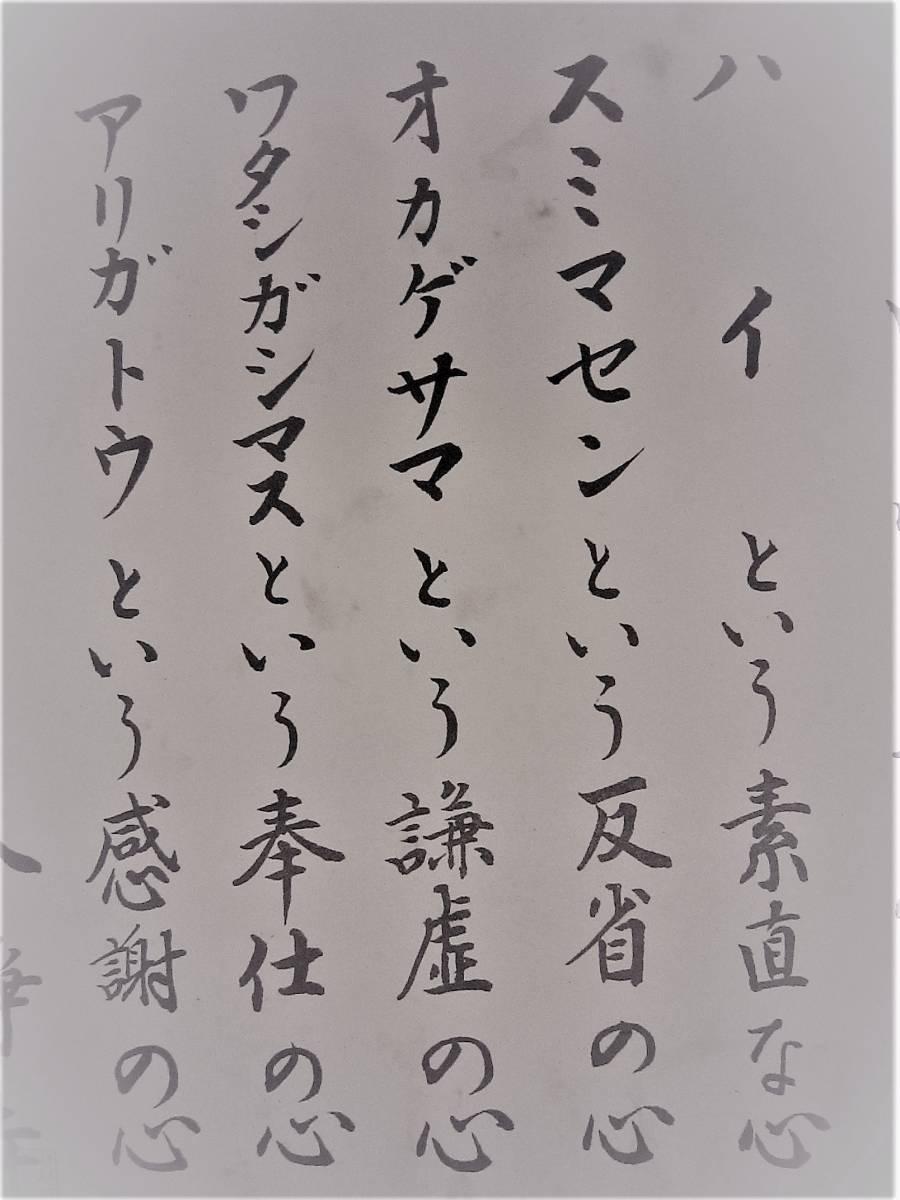 ハイという素直な心
スミマセンという反省の心
オカゲサマという謙虚の心
ワタシガシマスという奉仕の心
アリガトウという感謝の心